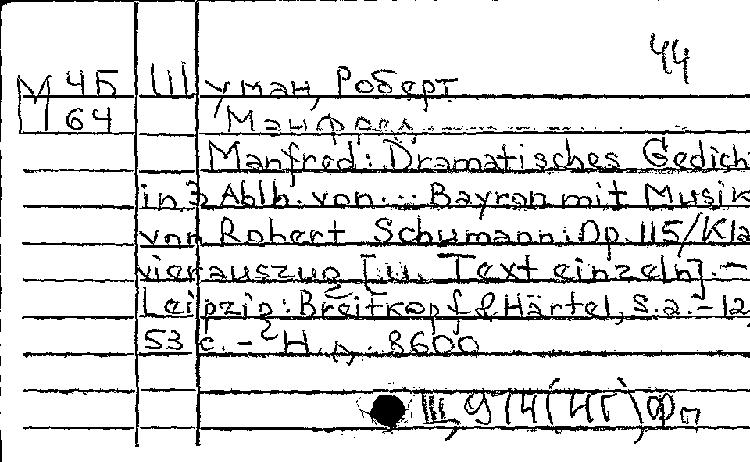 44
М 45 Шуман, Роберт
164 /Манфред
Manfred: Dramatisches Gedich
in 3 Ablh. von... Bayron mit Musik
von Robert Schumann. Op. 115/Kla
vierauszug [u. Text einzeln]. —
Leipzig: Breitkopf & Härtel, s.a. - 12,
53 с. - 2 Н.д. 8600
III, 9